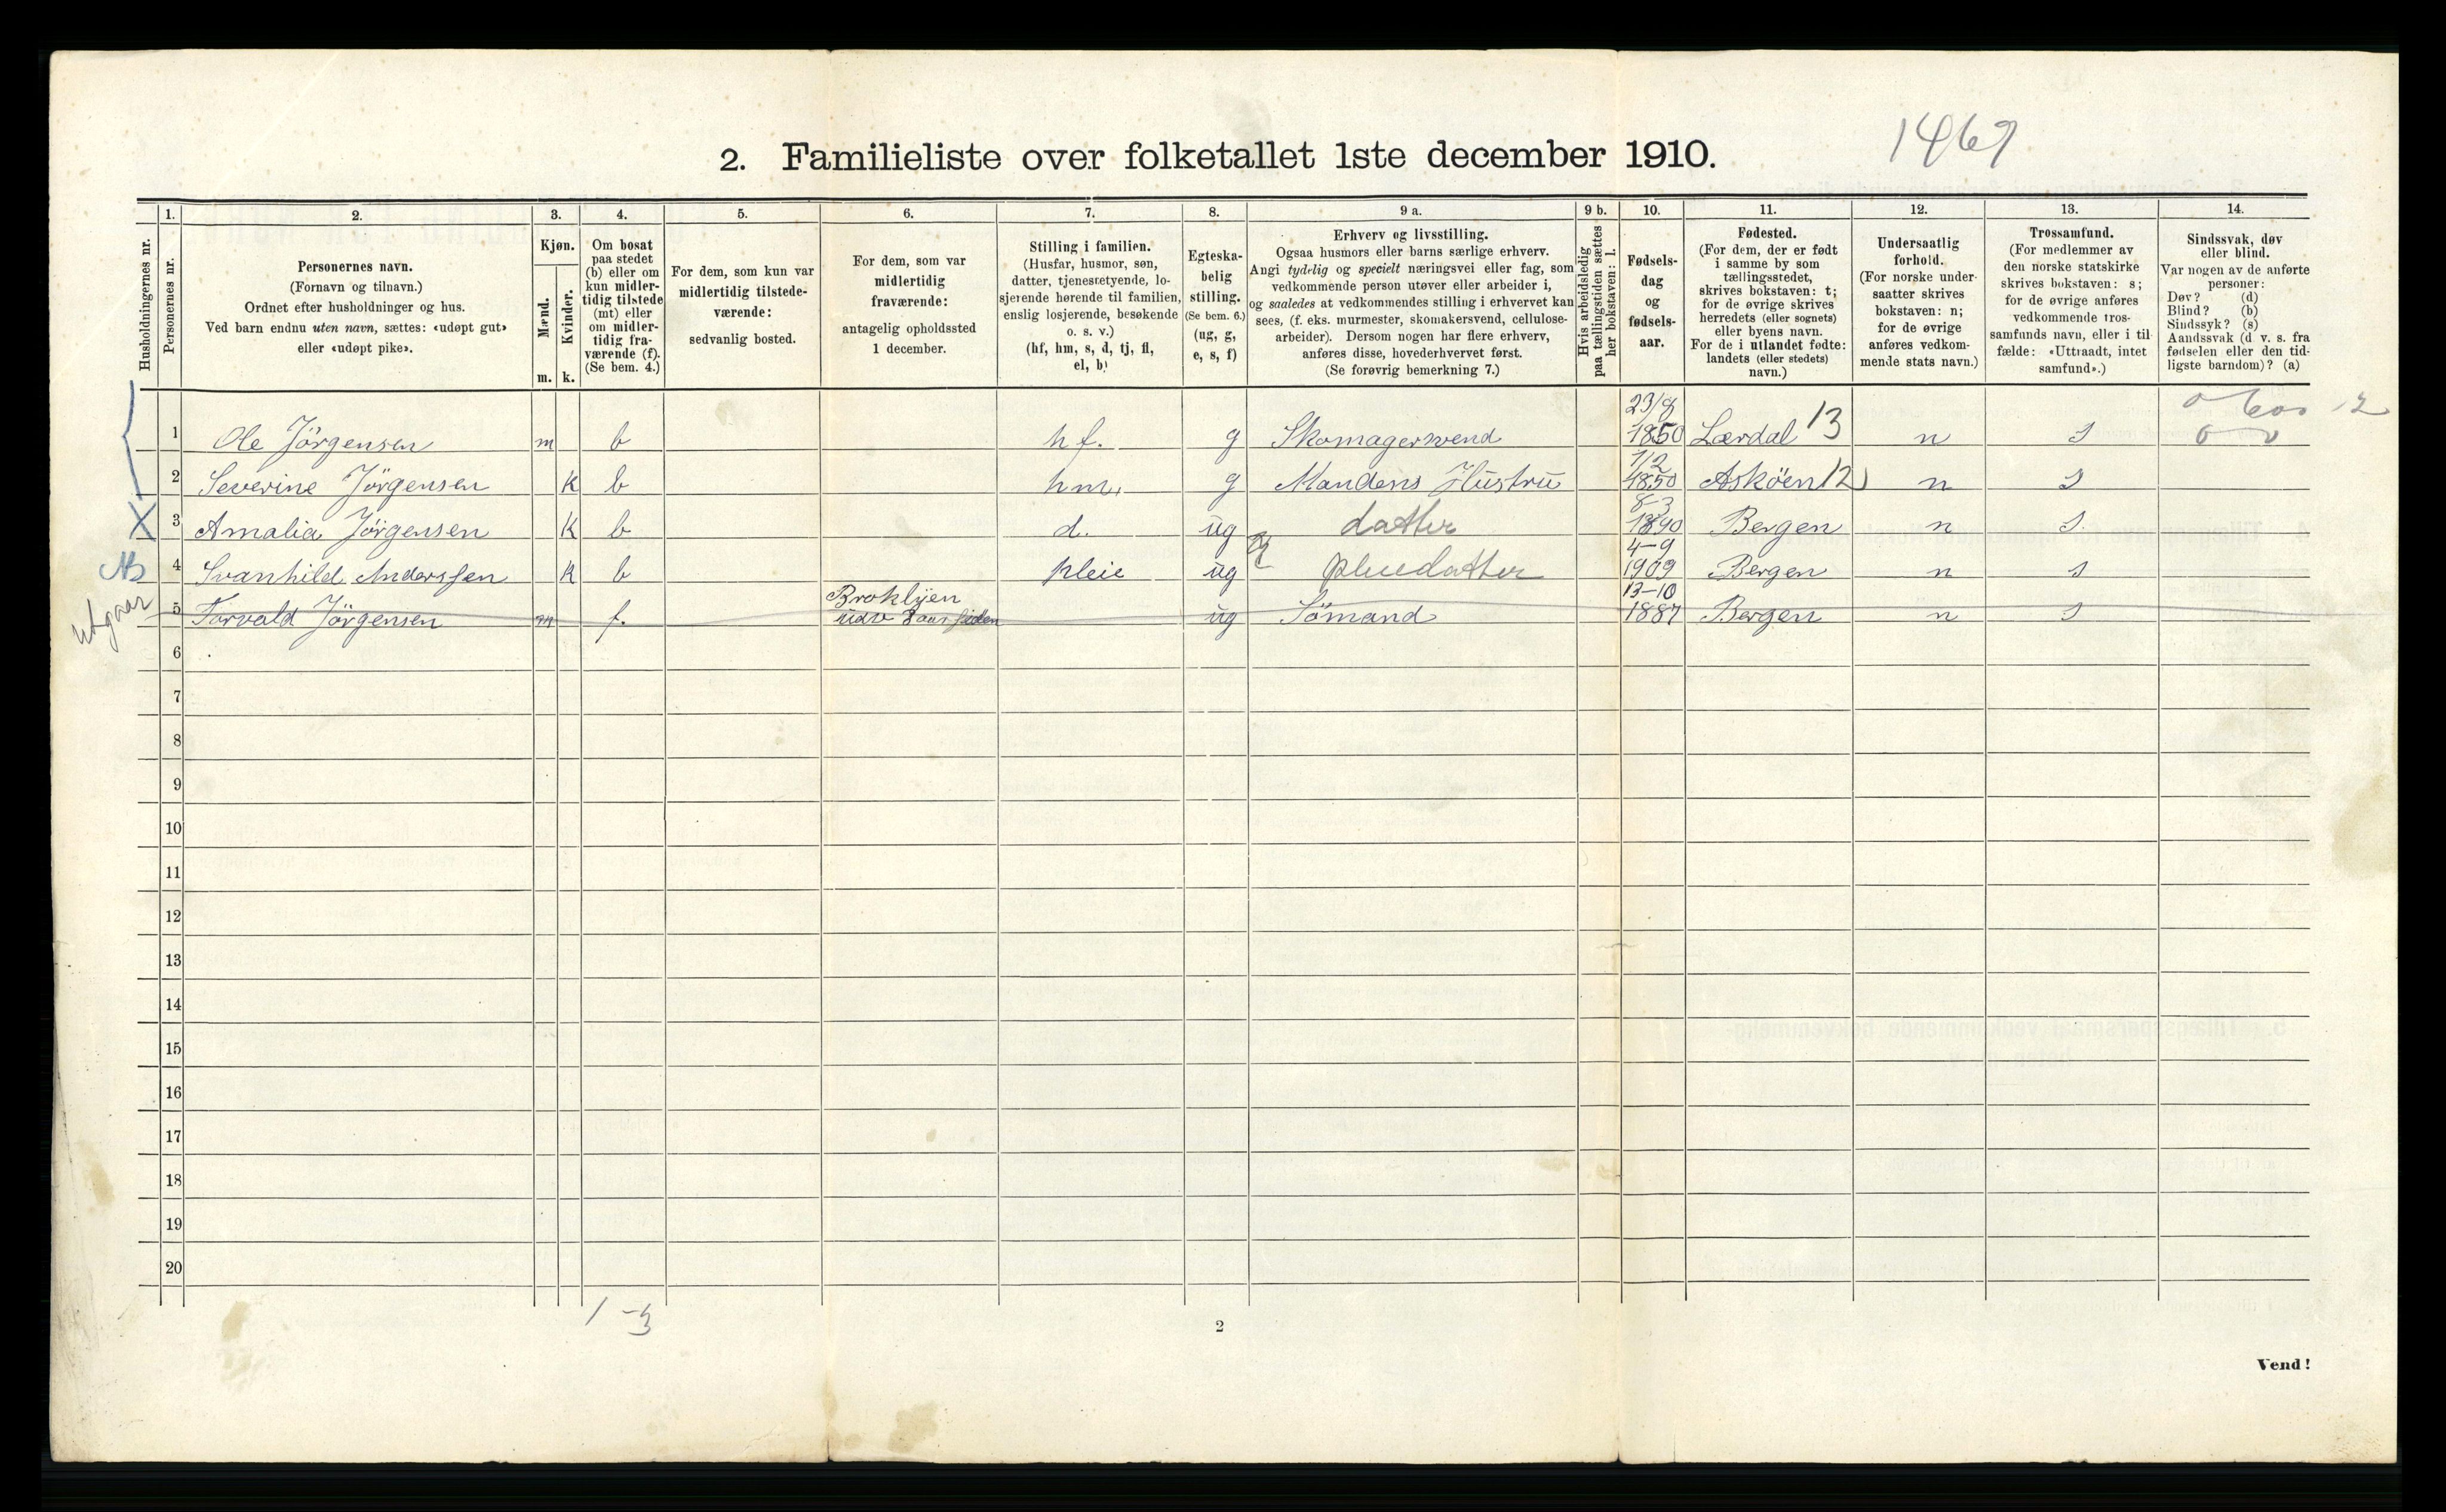 1469
2. Familieliste over folketallet 1ste december 1910.
1. 2. 3. 4. 5. 6. 7. 8. 9 a. 9 b. 10. 11. 12. 13. 14.
Husholdningernes nr.
Personernes nr.
Personernes navn.
(Fornavn og tilnavn.)
Ordnet efter husholdninger og hus.
Ved barn endnu uten navn, sættes: «udøpt gut»
eller «udøpt pike».
Kjøn.
Mænd.
Kvinder.
m. k.
Om bosat
paa stedet
(b) eller om
kun midler-
tidig tilstede
(mt) eller
om midler-
tidig fra-
værende (f).
(Se bem. 4.)
For dem, som kun var
midlertidig tilstede-
værende:
sedvanlig bosted.
For dem, som var
midlertidig
fraværende:
antagelig opholdssted
1 december.
Stilling i familien.
(Husfar, husmor, søn,
datter, tjenestetyende, lo-
sjerende hørende til familien,
enslig losjerende, besøkende
o. s. v.)
(hf, hm, s, d, tj, fl,
el, b)
Egteska-
belig
stilling.
(Se bem. 6.)
(ug, g,
e, s, f)
Erhverv og livsstilling.
Ogsaa husmors eller barns særlige erhverv.
Angi tydelig og specielt næringsvei eller fag, som
vedkommende person utøver eller arbeider i,
og saaledes at vedkommendes stilling i erhvervet kan
sees, (f. eks. murmester, skomakersvend, cellulose-
arbeider). Dersom nogen har flere erhverv,
anføres disse, hovederhvervet først.
(Se forøvrig bemerkning 7.)
Hvis arbeidsledig
paa tællingstiden sættes
her bokstaven: l.
Fødsels-
dag
og
fødsels-
aar.
Fødested.
(For dem, der er født
i samme by som
tællingsstedet,
skrives bokstaven: t;
for de øvrige skrives
herredets (eller sognets)
eller byens navn.
For de i utlandet fødte:
landets (eller stedets)
navn.)
Undersaatlig
forhold.
(For norske under-
saatter skrives
bokstaven: n;
for de øvrige
anføres vedkom-
mende stats navn.)
Trossamfund.
(For medlemmer av
den norske statskirke
skrives bokstaven: s;
for de øvrige anføres
vedkommende tros-
samfunds navn, eller i til-
fælde: «Uttraadt, intet
samfund».)
Sindssvak, døv
eller blind.
Var nogen av de anførte
personer:
Døv? (d)
Blind? (b)
Sindssyk? (s)
Aandssvak (d. v. s. fra
fødselen eller den tid-
ligste barndom)? (a)
23/8
1 Ole Jörgensen m b hf. g Skomagersvend 1850 Lærdal 13 n s
1/2
2 Severine Jörgensen k b hm. g Mandens Hustru 1850 Asköen 12 n s
8-3
X 3 Amalia Jörgensen k b d. ug datter 1890 Bergen n s
4-9
NB 4 Svanhild Anderssen k b pleie ug pleiedatter 1909 Bergen n s
Broklyen 13-10
utgaar 5 Torvald Jörgensen m f. ug Sömand 1887 Bergen n s
6
7
8
9
10
11
12
13
14
15
16
17
18
19
20
1-3
2
Vend!